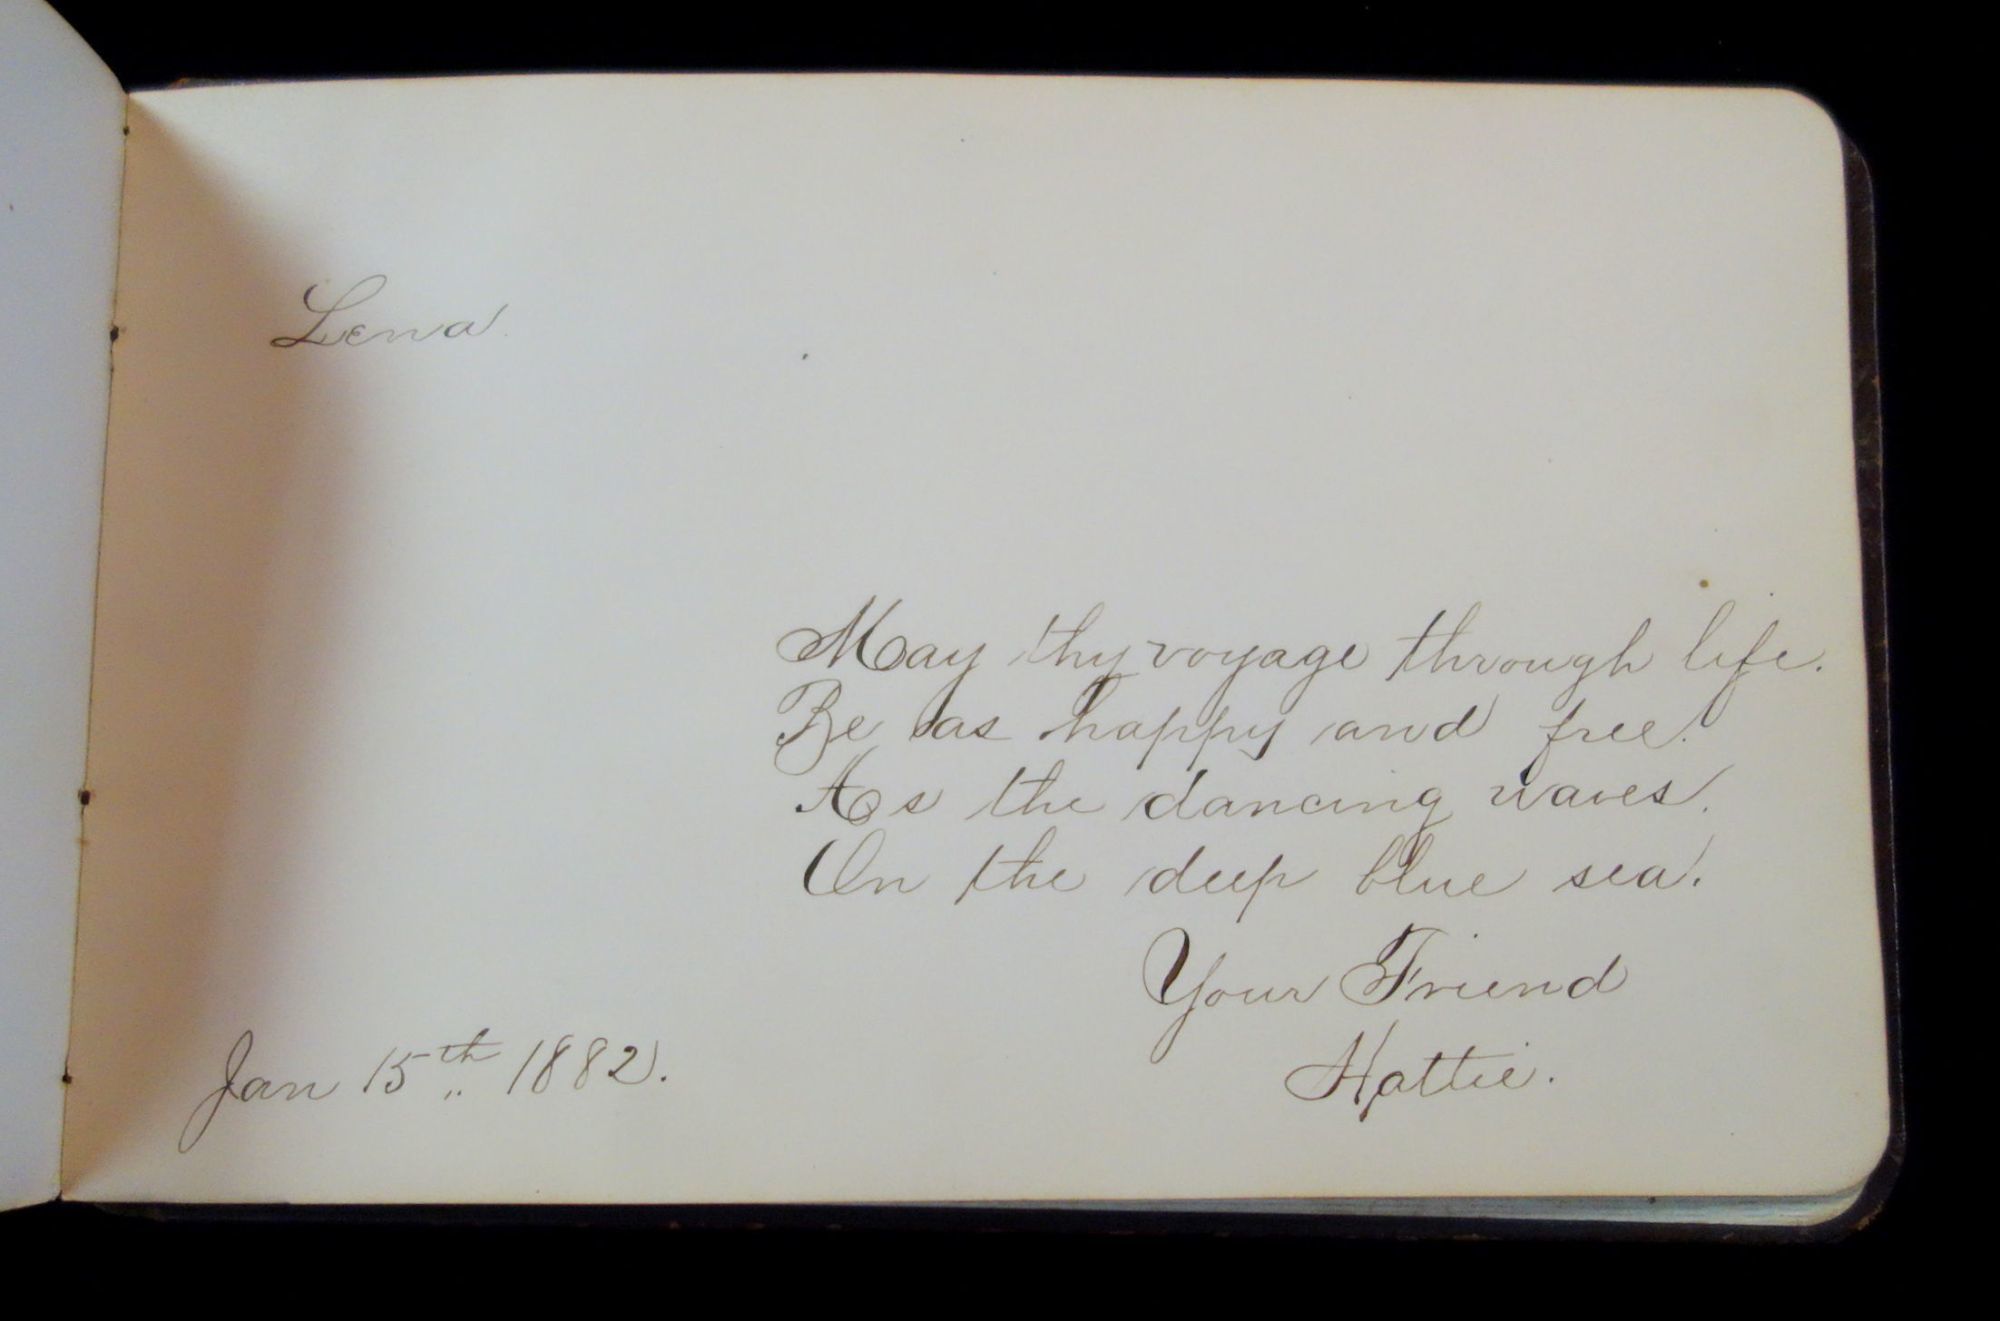 Lena
May thy voyage through life.
Be as happy and free.
As the dancing waves.
On the deep blue sea.
Your Friend
Hattie.
Jan 15th 1882.